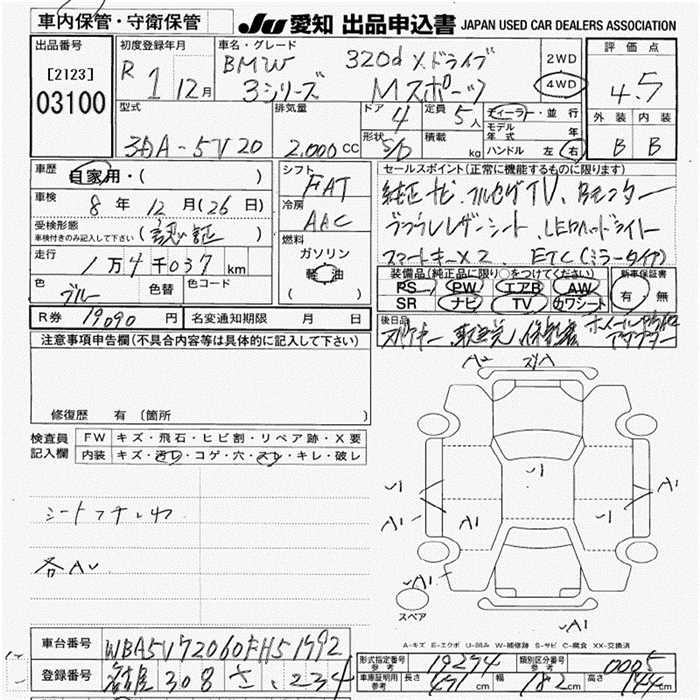 車内保管・守衛保管
JU 愛知 出品申込書 JAPAN USED CAR DEALERS ASSOCIATION
出品番号
[2123]
03100
初度登録年月
R 1年 12月
車名・グレード
BMW 320d Xドライブ
3シリーズ Mスポーツ
2WD
4WD
評価点
4.5
外装 内装
B B
型式
3DA-5V20
排気量
2,000cc
ドア 4
定員 5人
形状 5/D
積載 kg
ディーラー・並行
モデル年式 年
ハンドル 左 右
車歴
自家用・( )
車検
8年 12月(26日)
受検形態
車検付きのみ記入して下さい
(認証)
走行
1万4千037km
色
ブルー
色替
色コード
シフト
FAT
冷房
AAC
燃料
ガソリン
軽油
( )
セールスポイント(正常に機能するものに限ります)
純正ナビ.フルセグTV、Bモニター
ブラウンレザーシート、LEDヘッドライト
スマートキー×2、ETC(ミラータイプ)
装備品(純正品に限り○をつけてください)
PS PW エアB AW
SR ナビ TV カワシート
新車保証書
有・無
後日品
スペアキー、取説、
R券 19090円
名変通知期限 月 日
注意事項申告欄(不具合内容等は具体的に記入して下さい)
修復歴 有 〔箇所
検査員記入欄
FW キズ・飛石・ヒビ割・リペア跡・X要
内装 キズ・汚レ・コゲ・穴・スレ・キレ・破レ
各AU
A2
A1
A1
A1
A1
A1
スペア
A1
A-キズ E-エクボ U-凹み W-補修跡 S-サビ C-腐食 XX-交換済
車台番号
WBA5V72060FH51992
登録番号
名古屋 308 さ ・234
形式指定番号
参考
19294
類別区分番号
参考
0005
車庫証明用
参考
長さ 471cm 幅 182cm 高さ 144cm